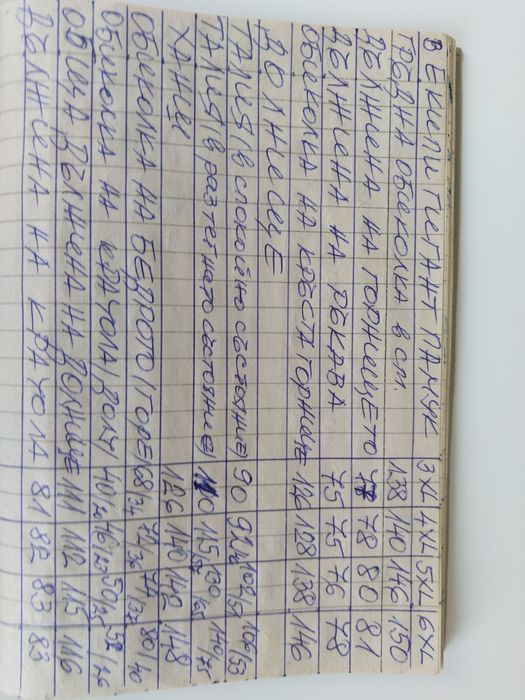 ЕКИП ГИГАНТ ПАМУК 3XL 4XL 5XL 6XL
ГРЪДНА ОБИКОЛКА в см. 138 140 146 150
ДЪЛЖЕНА НА ГОРНИЩЕТО 78 80 81
ДЪЛЖЕНА НА РЪКАВА 75 75 76 78
ОБИКОЛКА НА КРЪСТА ГОРНИЩЕ 126 128 138 146
ДОЛНИЩЕ
ТАЛИЯ (В СПОКОЙНО СЪСТОЯНИЕ) 90 92 102 106
ТАЛИЯ (В РАЗТЕГНАТО СЪСТОЯНИЕ) 110 115 130 140
ХАНШ 126 140 142 148
ОБИКОЛКА НА БЕДРОТО (ГОРЕ) 68/34 72/36 74/37 80/40
ОБИКОЛКА НА КРАЧОЛА (ДОЛУ) 40/20 46/23 50/25 52/26
ОБЩА ДЪЛЖЕНА НА ДОЛНИЩЕ 111 112 115 116
ДЪЛЖЕНА НА КРАЧОЛА 81 82 83 83